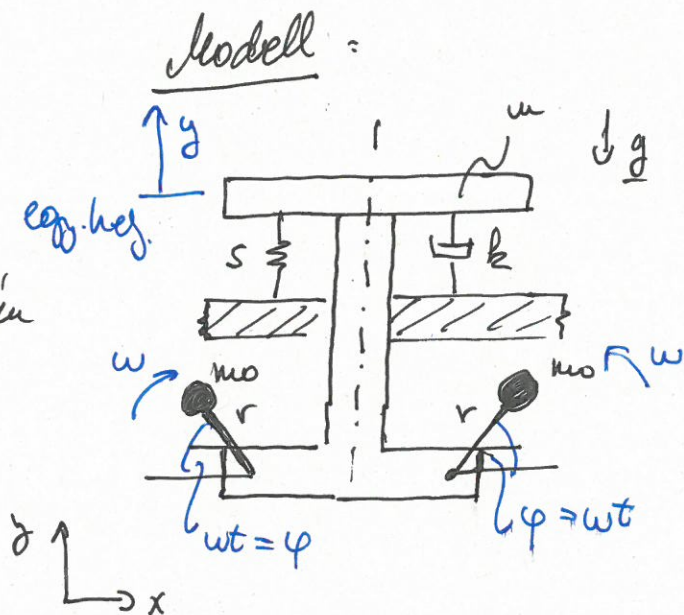 Modell :
y
m
↓ g
egy. hely.
s
k
ω
m0
m0
ω
r
r
ωt = φ
φ = ωt
y
x